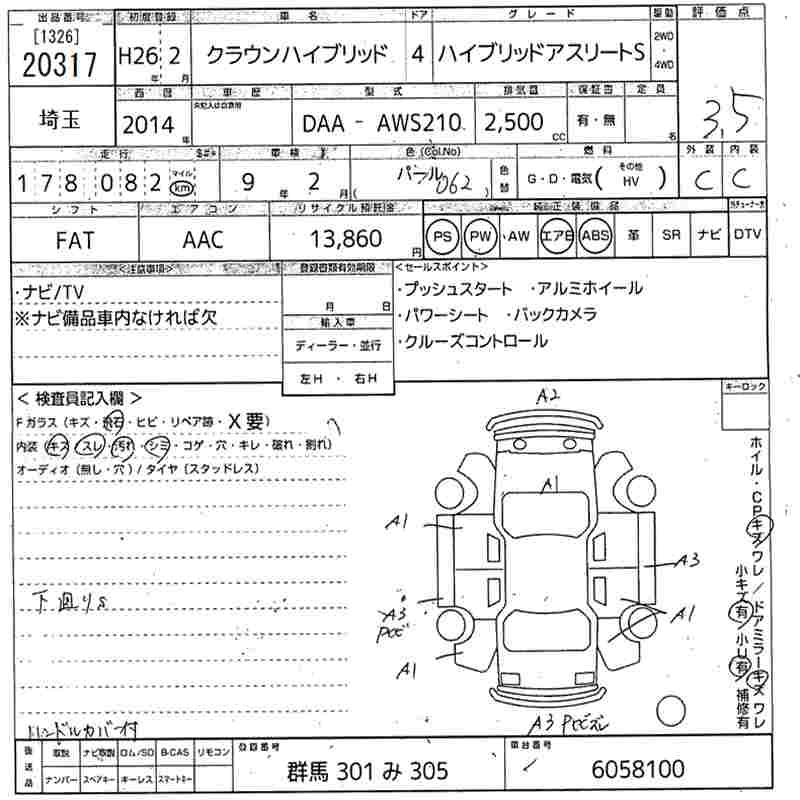 出品番号 初度登録 車名 ドア グレード 駆動 評価点
[1326]
20317 H26 2 クラウンハイブリッド 4 ハイブリッドアスリートS 2WD・4WD
年 月
西暦 車歴 型式 排気量 保証書 定員
埼玉 2014 年 DAA - AWS210 2,500 CC 有・無 名 3,5
走行 車検 色(Col.No) 燃料 外装 内装
178082 マイル km 9 年 2 月 パール 062 色替 G・D・電気( その他 HV ) C C
シフト エアコン リサイクル預託金 純正装備品
FAT AAC 13,860 円 PS PW AW エアB ABS 革 SR ナビ DTV
<注意事項> 登録書類有効期限 <セールスポイント>
・ナビ/TV
※ナビ備品車内なければ欠
月 日
輸入車
ディーラー・並行
左H ・ 右H
・プッシュスタート ・アルミホイール
・パワーシート ・バックカメラ
・クルーズコントロール
キーロック
< 検査員記入欄 >
Fガラス (キズ・飛石・ヒビ・リペア跡・X要)
内装 (キズ・スレ・汚れ・シミ・コゲ・穴・キレ・破れ・割れ)
オーディオ (無し・穴) / タイヤ (スタッドレス)
A2
A1
A1
A3
下廻りS
A3
A1
A1
A3
ハンドルカバー付
ホイル・CPキズワレ / ドアミラーキズワレ
小キズ有 / 小U有 / 補修有
後送品 取説 ナビ取説 ロム/SD B-CAS リモコン
ナンバー スペアキー キーレス スマートキー
登録番号 群馬 301 み 305
車台番号 6058100